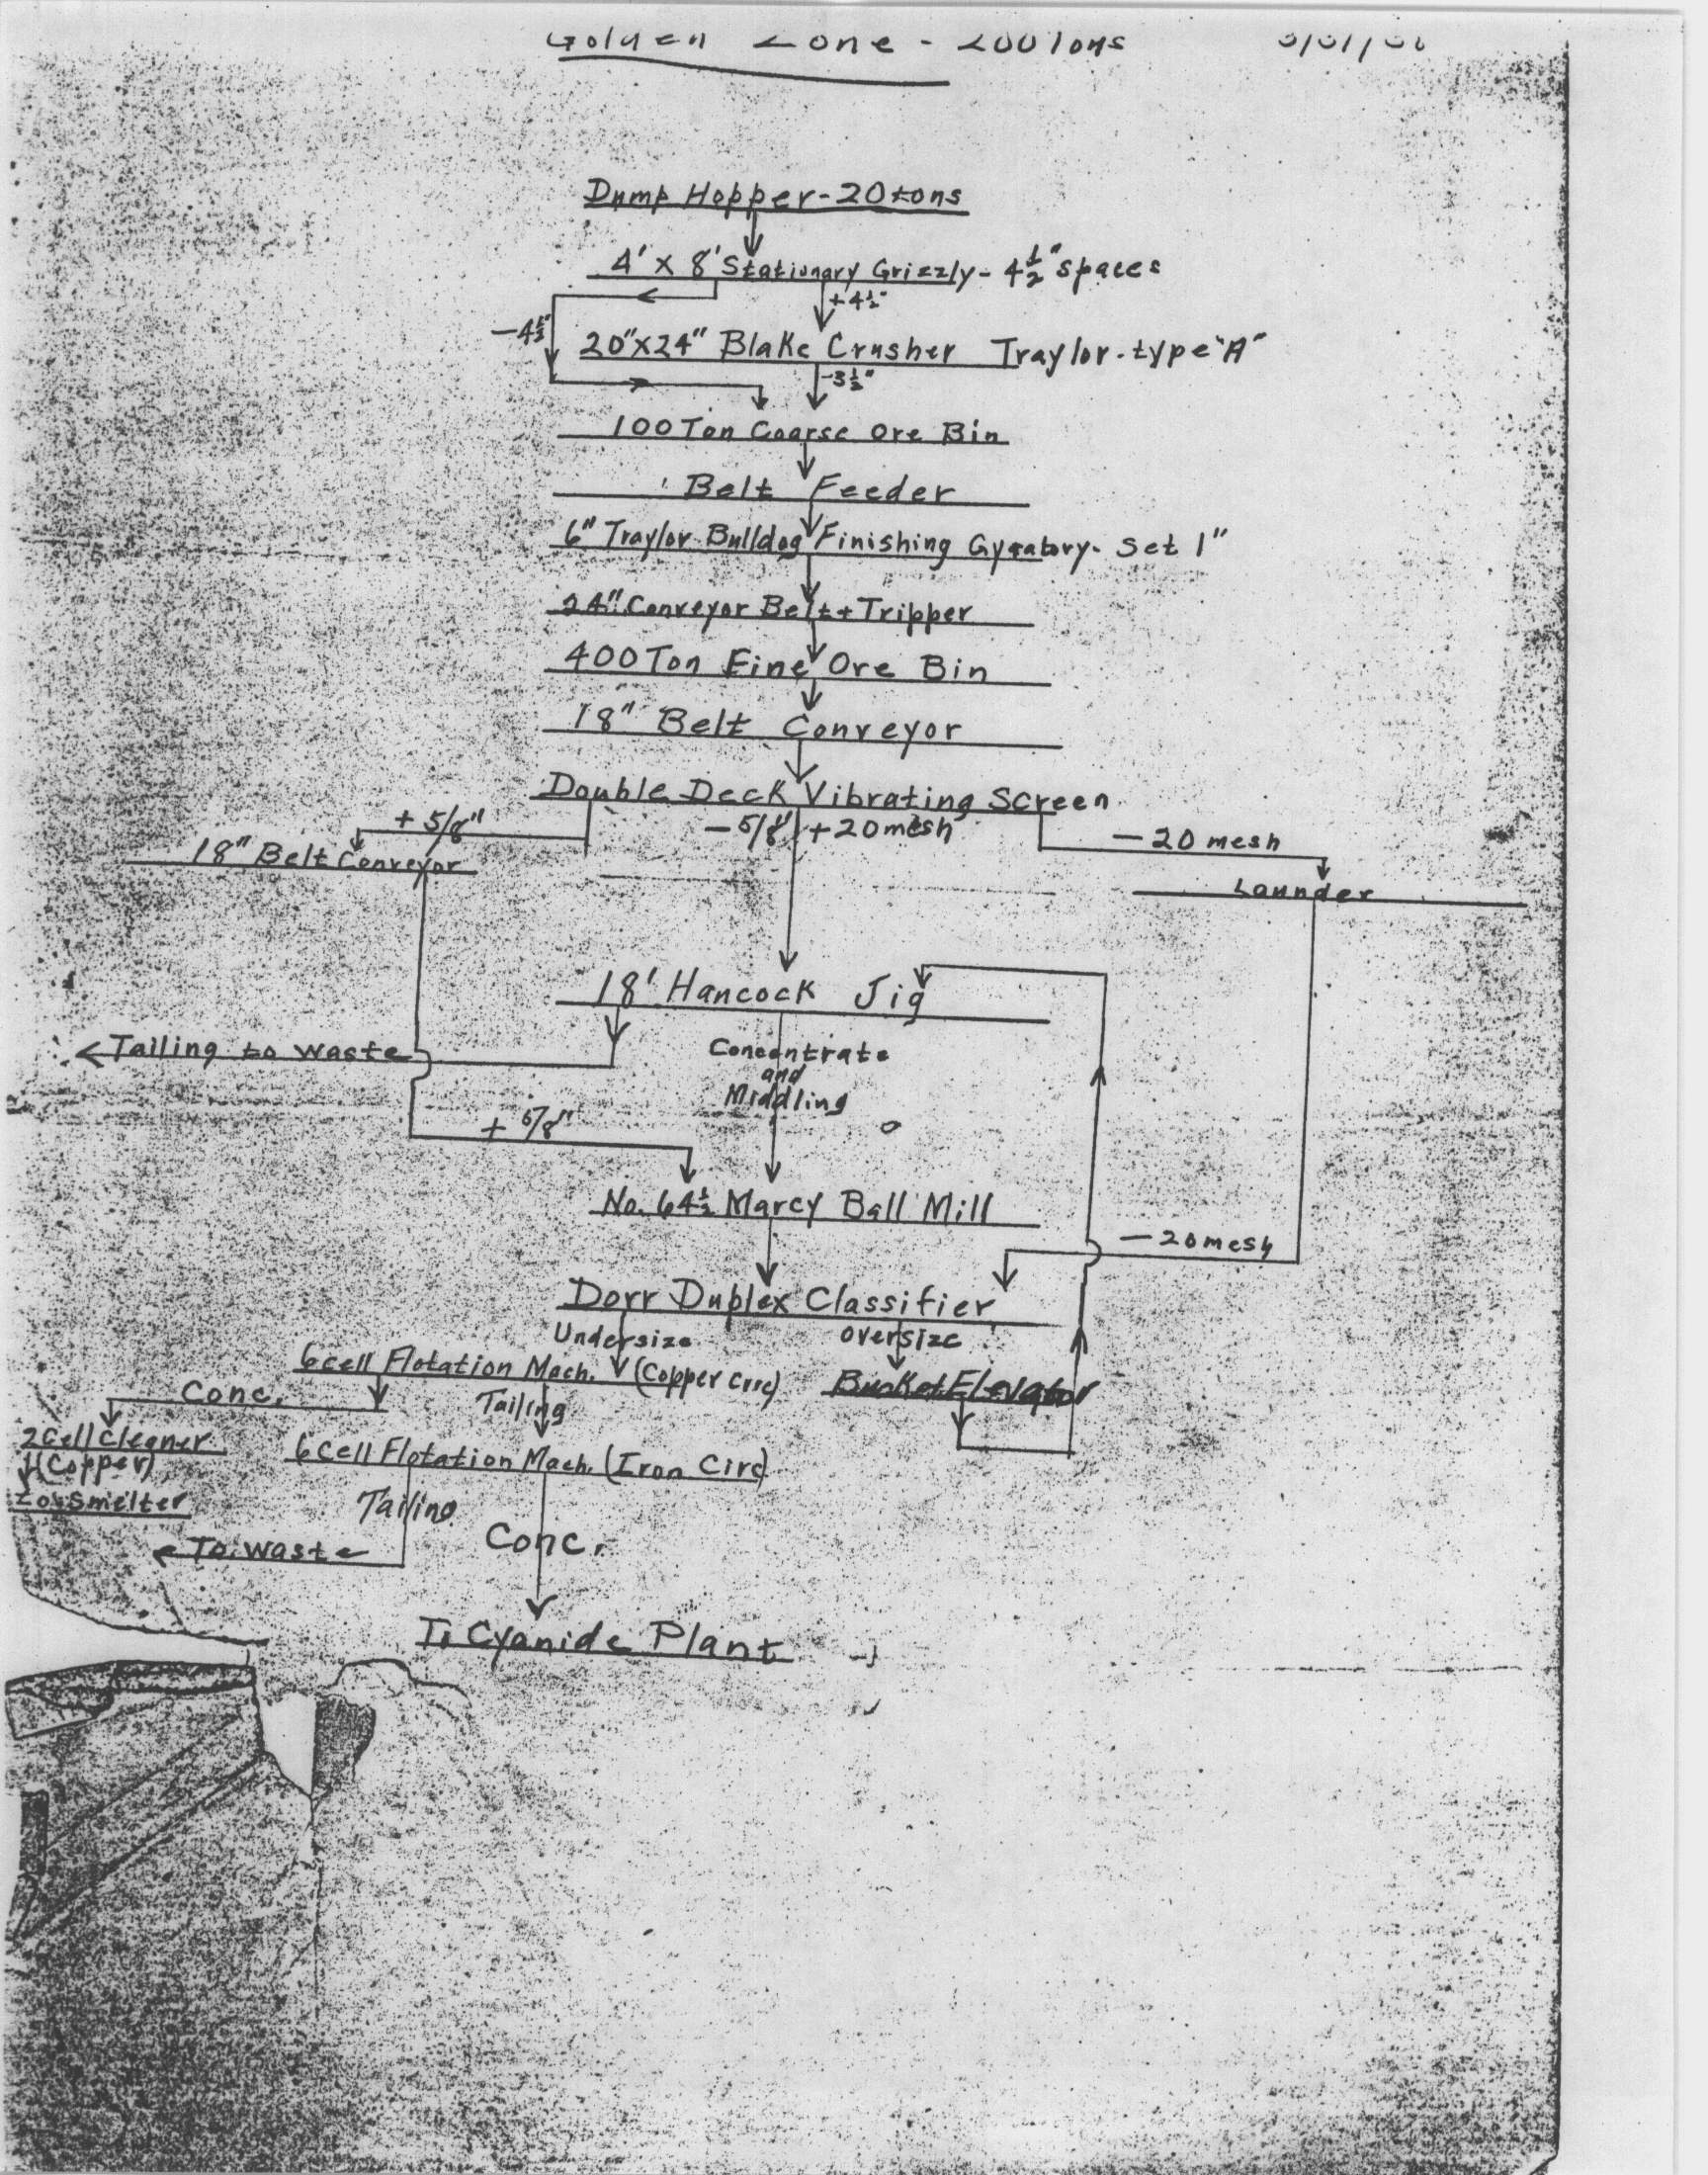 Golden Zone - 200 Tons
Dump Hopper - 20 tons
4' X 8' Stationary Grizzly - 4 1/2" spaces
+4 1/2"
-4 1/2"
20"X24" Blake Crusher Traylor - type "A"
-3 1/2"
100 Ton Coarse Ore Bin
Belt Feeder
6" Traylor Bulldog Finishing Gyratory - Set 1"
24" Conveyor Belt + Tripper
400 Ton Fine Ore Bin
18" Belt Conveyor
Double Deck Vibrating Screen
+ 5/8"
- 5/8" + 20 mesh
- 20 mesh
18" Belt Conveyor
Launder
18' Hancock Jig
Tailing to waste
Concentrate
and
Middling
+ 5/8"
No. 64 1/2 Marcy Ball Mill
- 20 mesh
Dorr Duplex Classifier
Undersize
oversize
6 cell Flotation Mach. (Copper Circ)
Bucket Elevator
Conc.
Tailing
2 Cell Cleaner
(Copper)
6 Cell Flotation Mach. (Iron Circ)
to Smelter
Tailing
Conc.
To waste
To Cyanide Plant